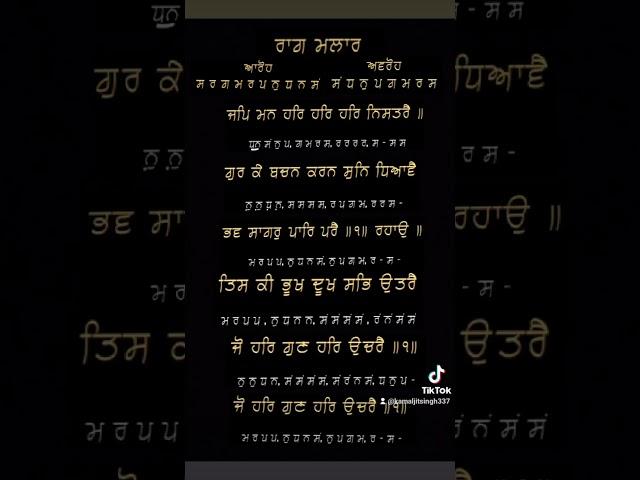 ਰਾਗ ਮਲਾਰ
ਆਰੋਹ ਅਵਰੋਹ
ਸ ਰ ਗ ਮ ਰ ਪ ਨੁ ਧ ਨ ਸਂ ਸਂ ਧ ਨੁ ਪ ਗ ਮ ਰ ਸ
ਜਪਿ ਮਨ ਹਰਿ ਹਰਿ ਹਰਿ ਨਿਸਤਰੈ ॥
ਸਂ ਨੁ ਪ, ਗ ਮ ਰ ਸ, ਰ ਰ ਰ ਰ, ਸ - ਸ ਸ
ਗੁਰ ਕੇ ਬਚਨ ਕਰਨ ਸੁਨਿ ਧਿਆਵੈ
ਸ ਸ ਸ ਸ, ਰ ਪ ਗ ਮ, ਰ ਰ ਸ -
ਭਵ ਸਾਗਰੁ ਪਾਰਿ ਪਰੈ ॥੧॥ ਰਹਾਉ ॥
ਮ ਰ ਪ ਪ, ਨੁ ਧ ਨ ਸਂ, ਨੁ ਪ ਗ ਮ, ਰ - ਸ -
ਤਿਸ ਕੀ ਭੂਖ ਦੂਖ ਸਭਿ ਉਤਰੈ
ਮ ਰ ਪ ਪ, ਨੁ ਧ ਨ ਨ, ਸਂ ਸਂ ਸਂ ਸਂ, ਰਂ ਨਂ ਸਂ ਸਂ
ਜੋ ਹਰਿ ਗੁਣ ਹਰਿ ਉਚਰੈ ॥੧॥
ਨੁ ਨੁ ਧ ਨ, ਸਂ ਸਂ ਸਂ ਸਂ, ਸਂ ਰਂ ਨ ਸਂ, ਧ ਨੁ ਪ -
ਜੋ ਹਰਿ ਗੁਣ ਹਰਿ ਉਚਰੈ ॥੧॥
ਮ ਰ ਪ ਪ, ਨੁ ਧ ਨ ਸਂ, ਨੁ ਪ ਗ ਮ, ਰ - ਸ -
TikTok
@kamaljitsingh337